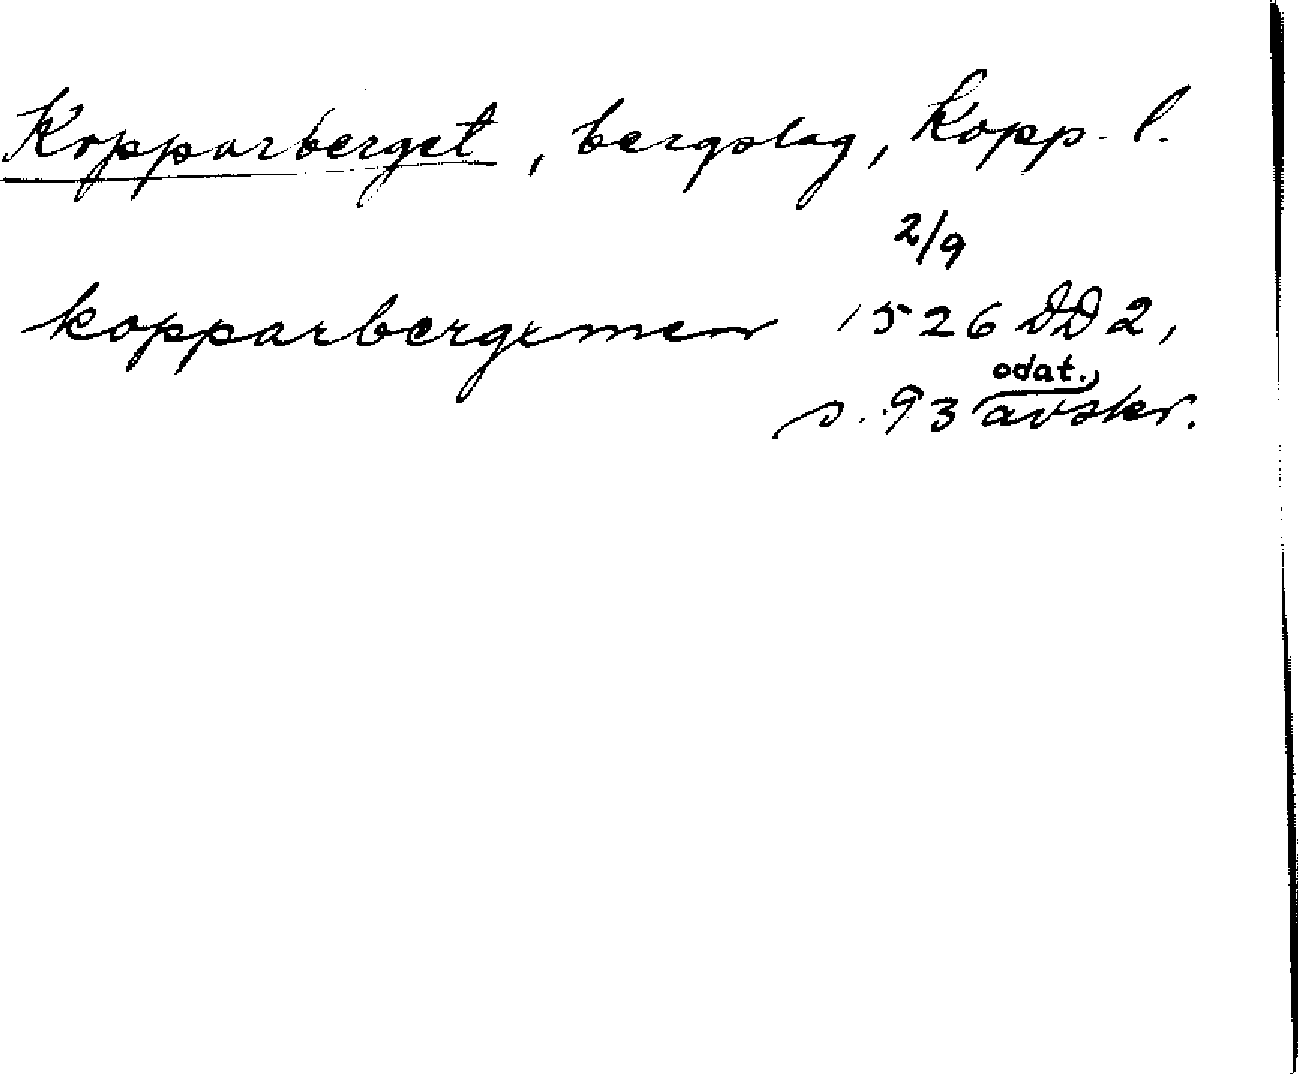 Kopparberget, bergslag, Kopp. l.
2/9
kopparbergxmen 1526 DD 2,
odat.,
s. 93 avskr.